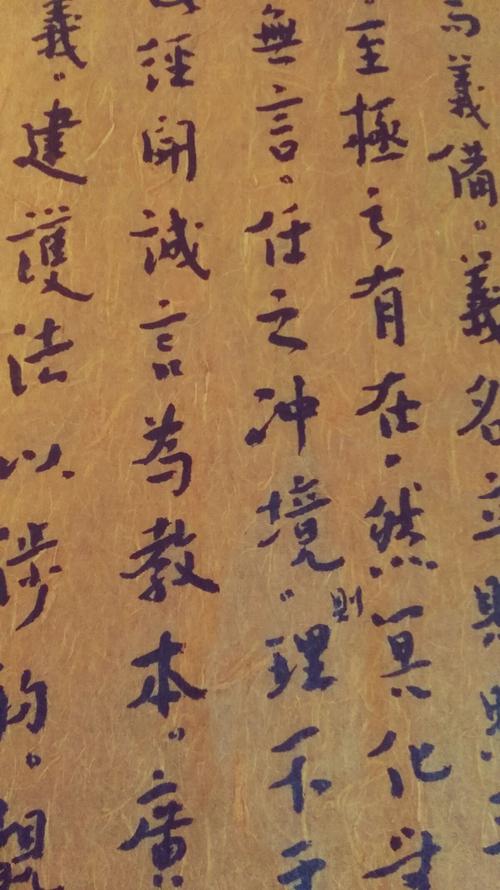 義備。義名立
至極之有在。然冥化
無言。任之冲境。則理不
經開誠言為教本。廣
義。建護法以涉